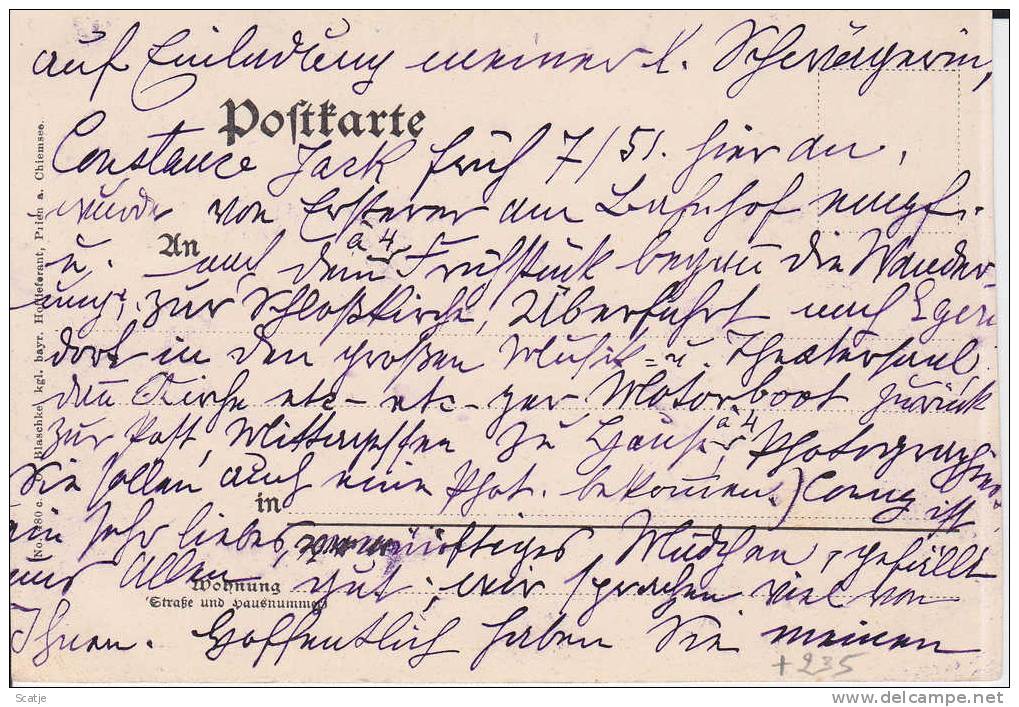 auf Einladung meiner l. Schwägerin,
Postkarte
Constance Jack früh 7/51. hier an,
wurde von Ersterer am Bahnhof empf.
An
à 4
u. nach dem Frühstück begann die Wander-
ung, zur Schloßkirche, Überfahrt nach
dorf in den großen Musik- u. Theatersaal
Kirche etc- etc- per Motorboot zurück
à 4
zur Post, Mittagessen zu Hause,
Sie sollen auch eine Phot. bekommen.) Conny ist
in
ein sehr liebes, vernünftiges Mädchen, gefällt
uns Allen gut; wir sprachen viel von
Wohnung
Straße und Hausnummer
Ihnen. Hoffentlich haben Sie meinen
+235
Blaschke, kgl. bayr. Hoflieferant, Prien a. Chiemsee.
Scatje
delcampe.net